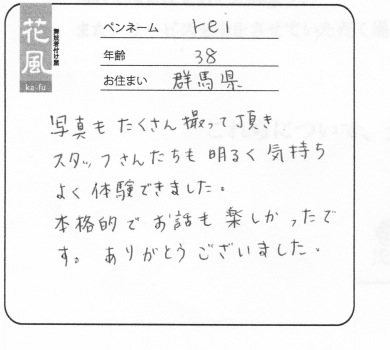 花風
舞妓着付け館
ka-fu
ペンネーム rei
年齢 38
お住まい 群馬県
写真もたくさん撮って頂き
スタッフさんたちも明るく気持ち
よく体験できました。
本格的でお話も楽しかったで
す。ありがとうございました。